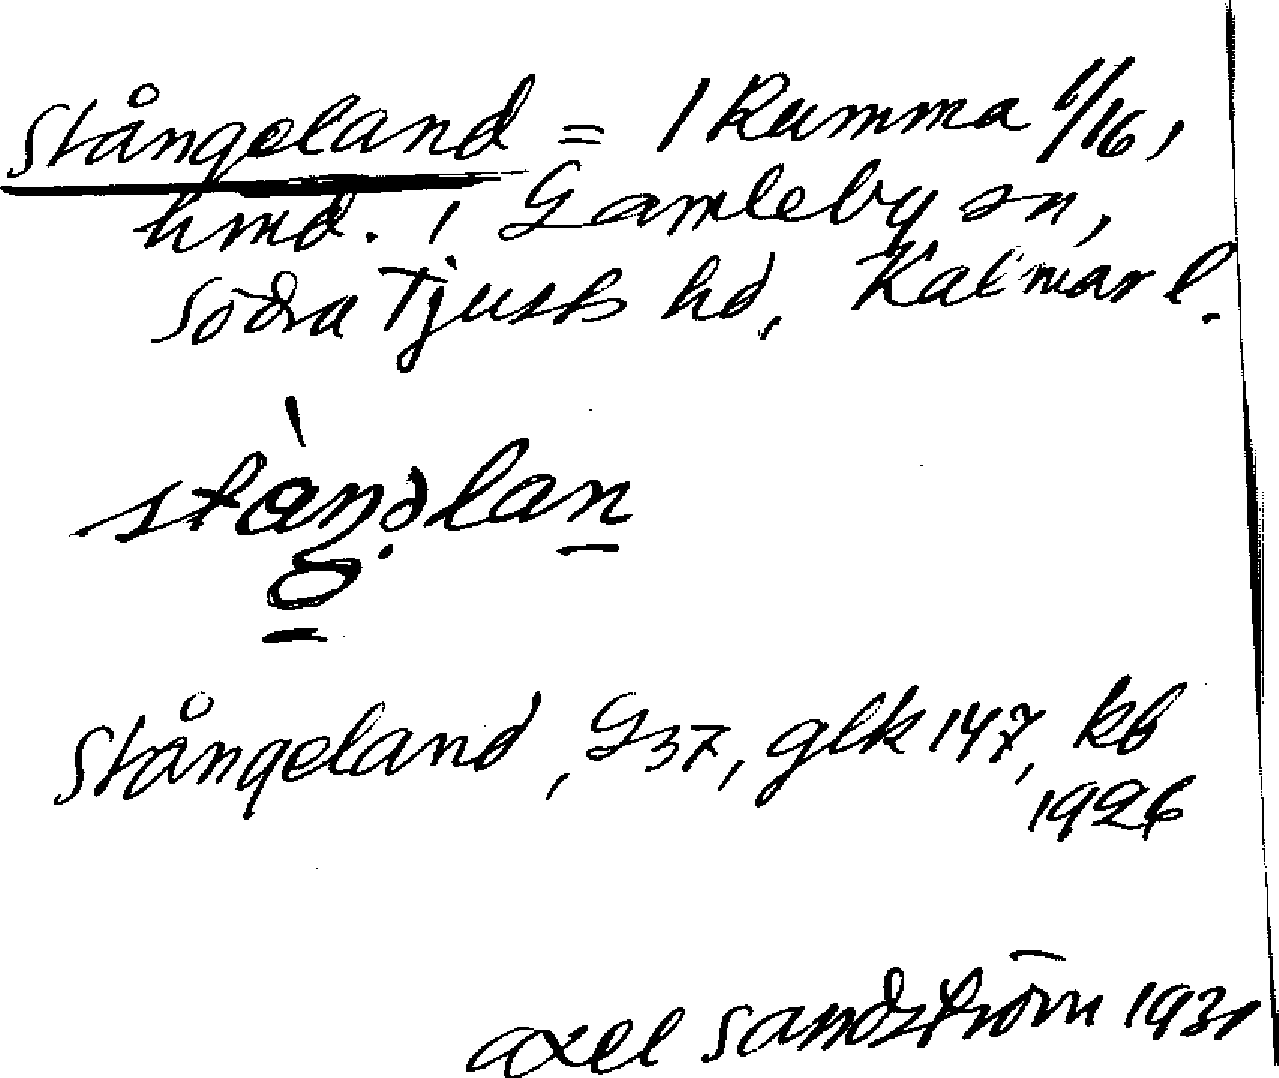 Stångeland = 1 Rumma 1/16,
hmd. i Gamleby sn,
Södra Tjusts hd, Kalmar l.
stàŋəlan
Stångeland, G37, glk 147, kb
1926
Axel Sandström 1931